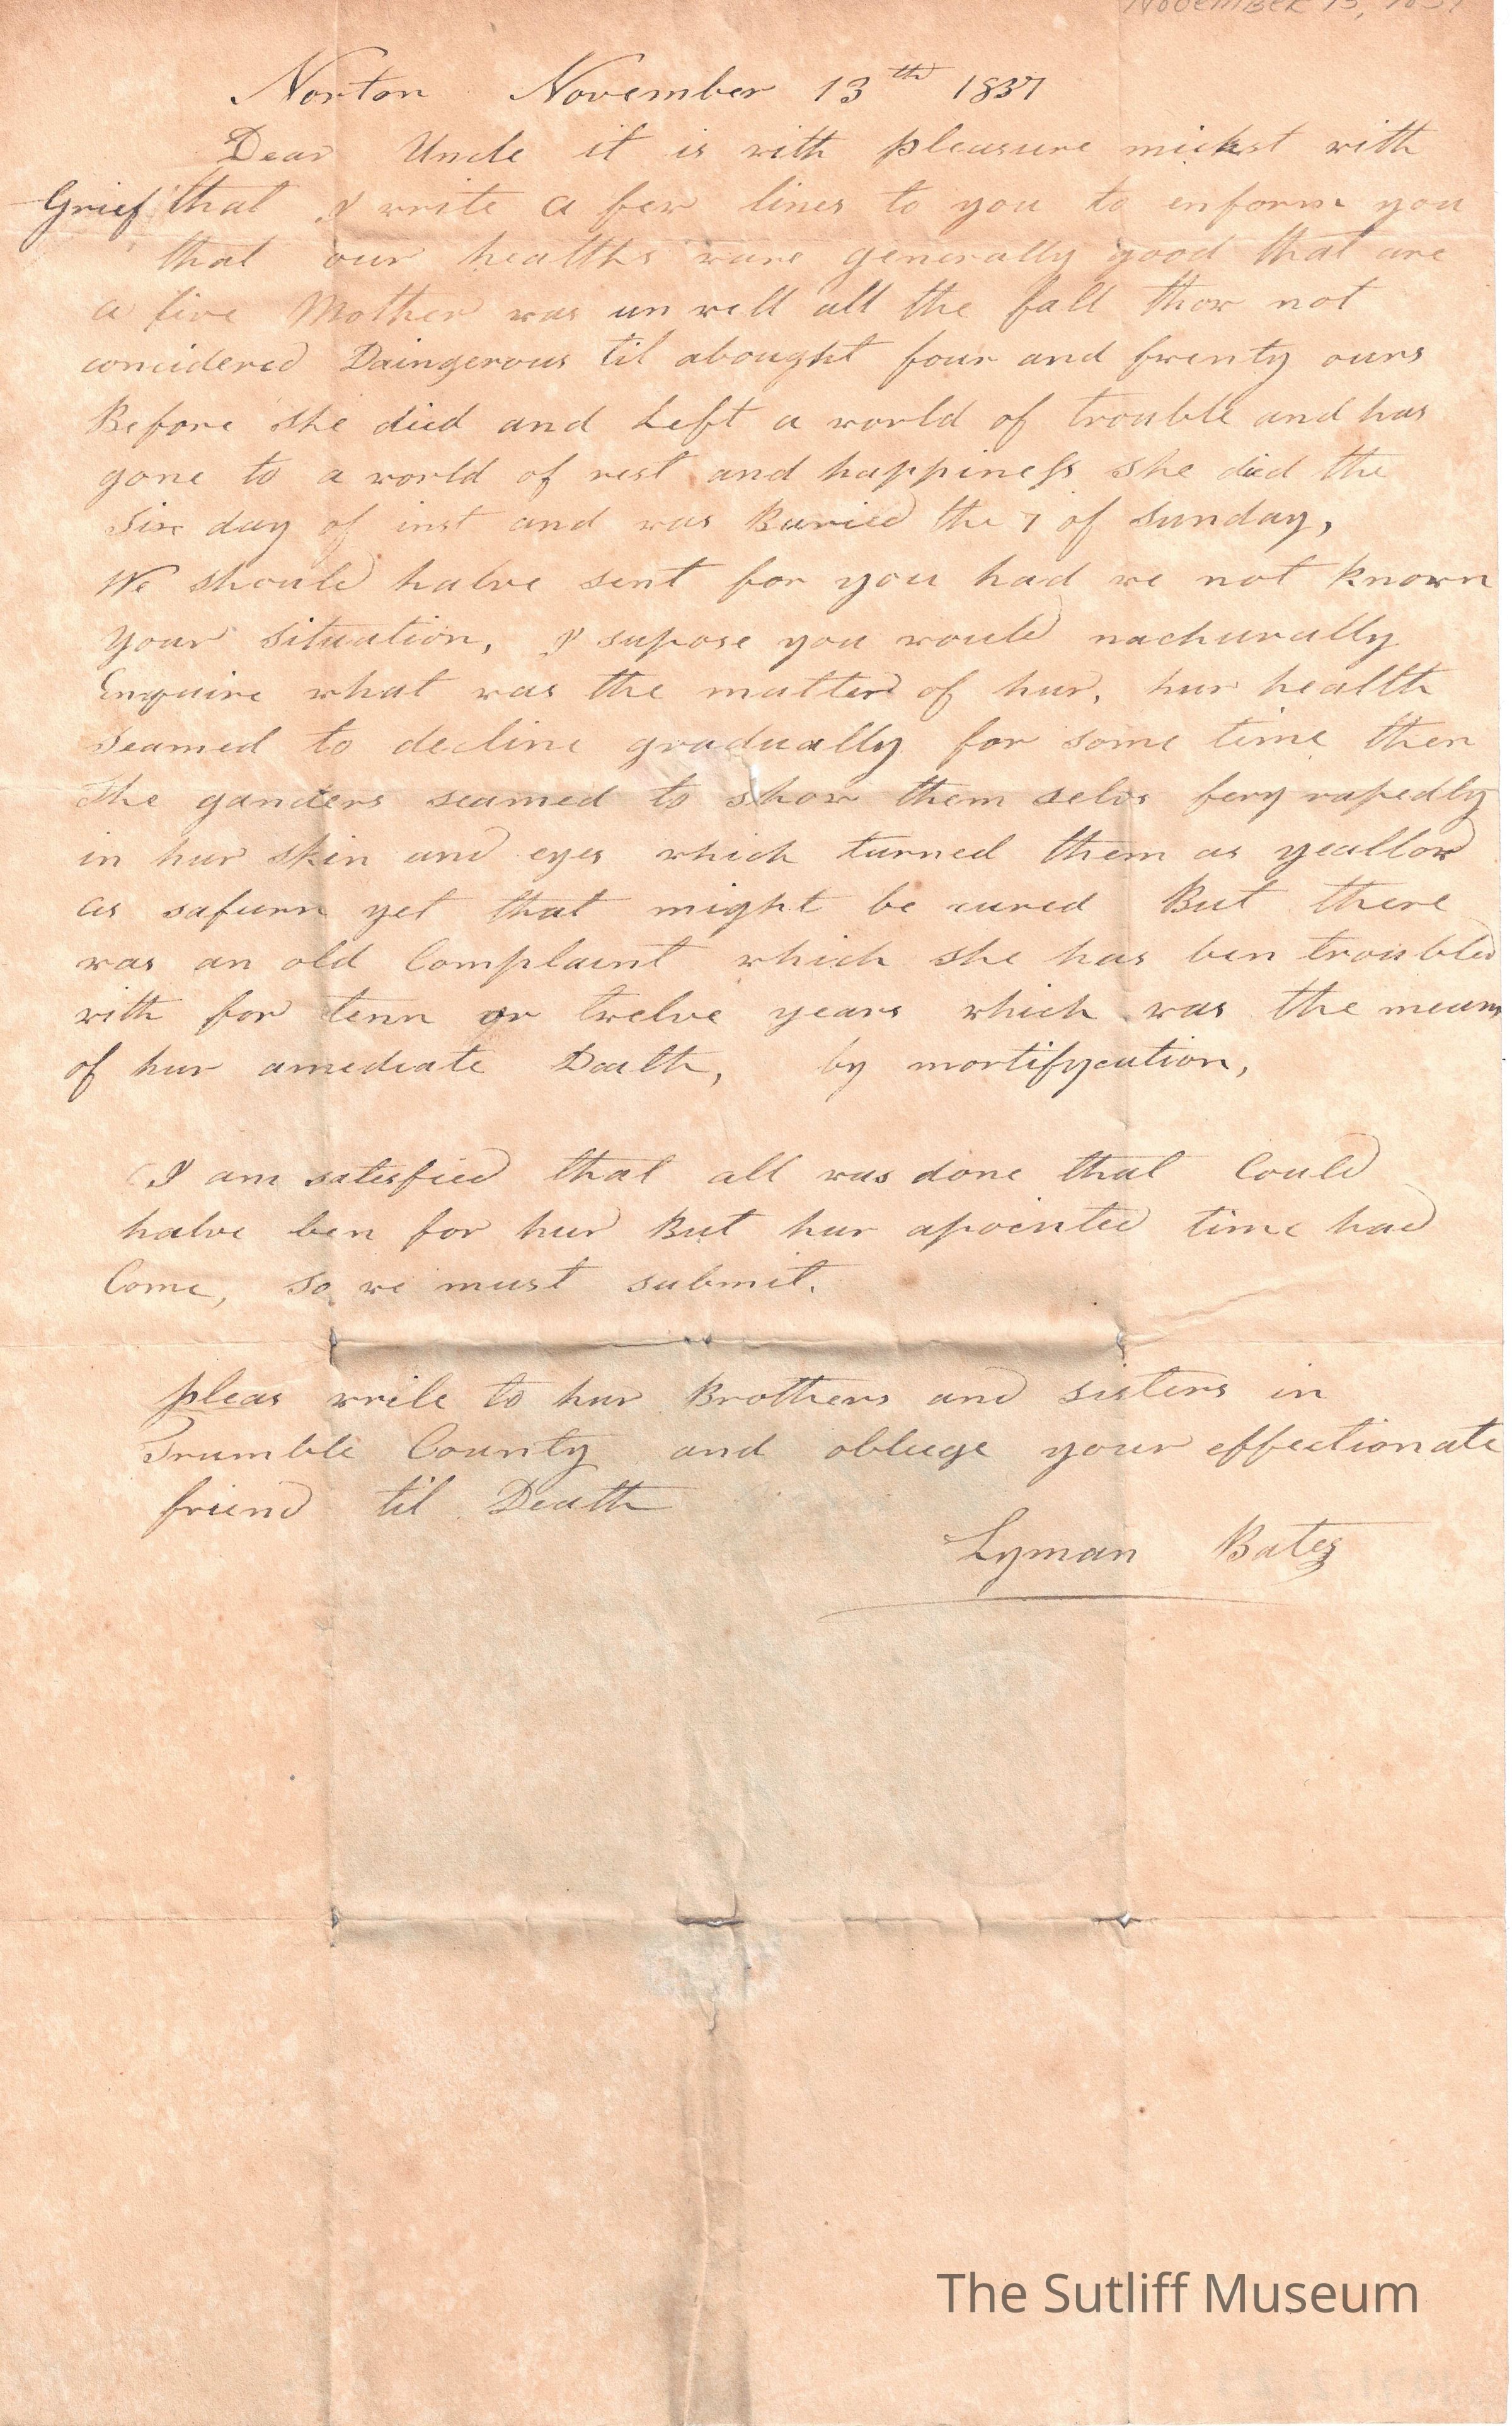 November 13, 1837
Norton November 13th 1837
Dear Uncle it is with pleasure mickst with
Grief that I write a few lines to you to enform you
that our healths ware generally good that are
a live Mother was un well all the fall thow not
concidered Daingerous til abought four and twenty ours
Before she died and Left a world of trouble and has
gone to a world of rest and happiness she died the
Six day of inst and was Buried the 7 of Sunday,
We should halve sent for you had we not known
your situation, I supose you would nachurally
Enquire what was the matter of hur, hur health
seamed to decline gradually for some time then
The ganders seamed to show them selvs fery rapedly
in hur skin and eyes which turned them as yeallow
as safurn yet that might be cured But there
was an old Complaint which she has ben troubled
with for tenn or twelve years which was the means
of hur amediate Death, by mortifycation,
I am satesfied that all was done that Could
halve ben for hur But hur apointed time had
Come, so we must submit.
pleas write to hur Brothers and sisters in
Trumble County and obliege your effectionate
friend til Death
Lyman Bates
The Sutliff Museum